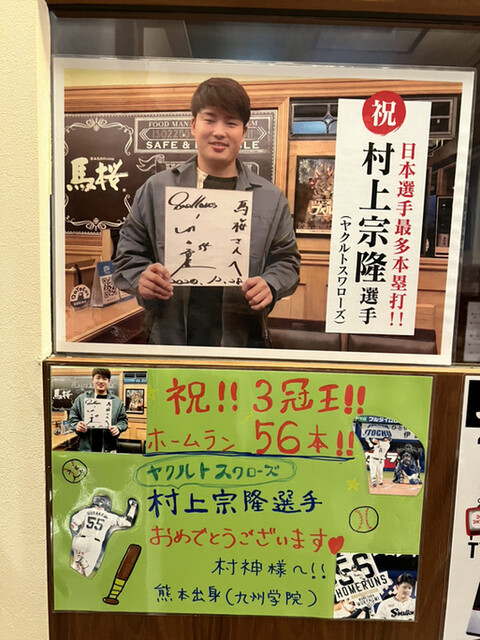 FOOD MAN
SAFE & 
馬桜
祝
日本選手最多本塁打!!
村上宗隆選手
(ヤクルトスワローズ)
馬桜さんへ
Swallows
55
祝!!3冠王!!
ホームラン 56本!!
ヤクルトスワローズ
村上宗隆選手
おめでとうございます
村神様へ!!
熊本出身(九州学院)
55
56
HOMERUNS
Swallows